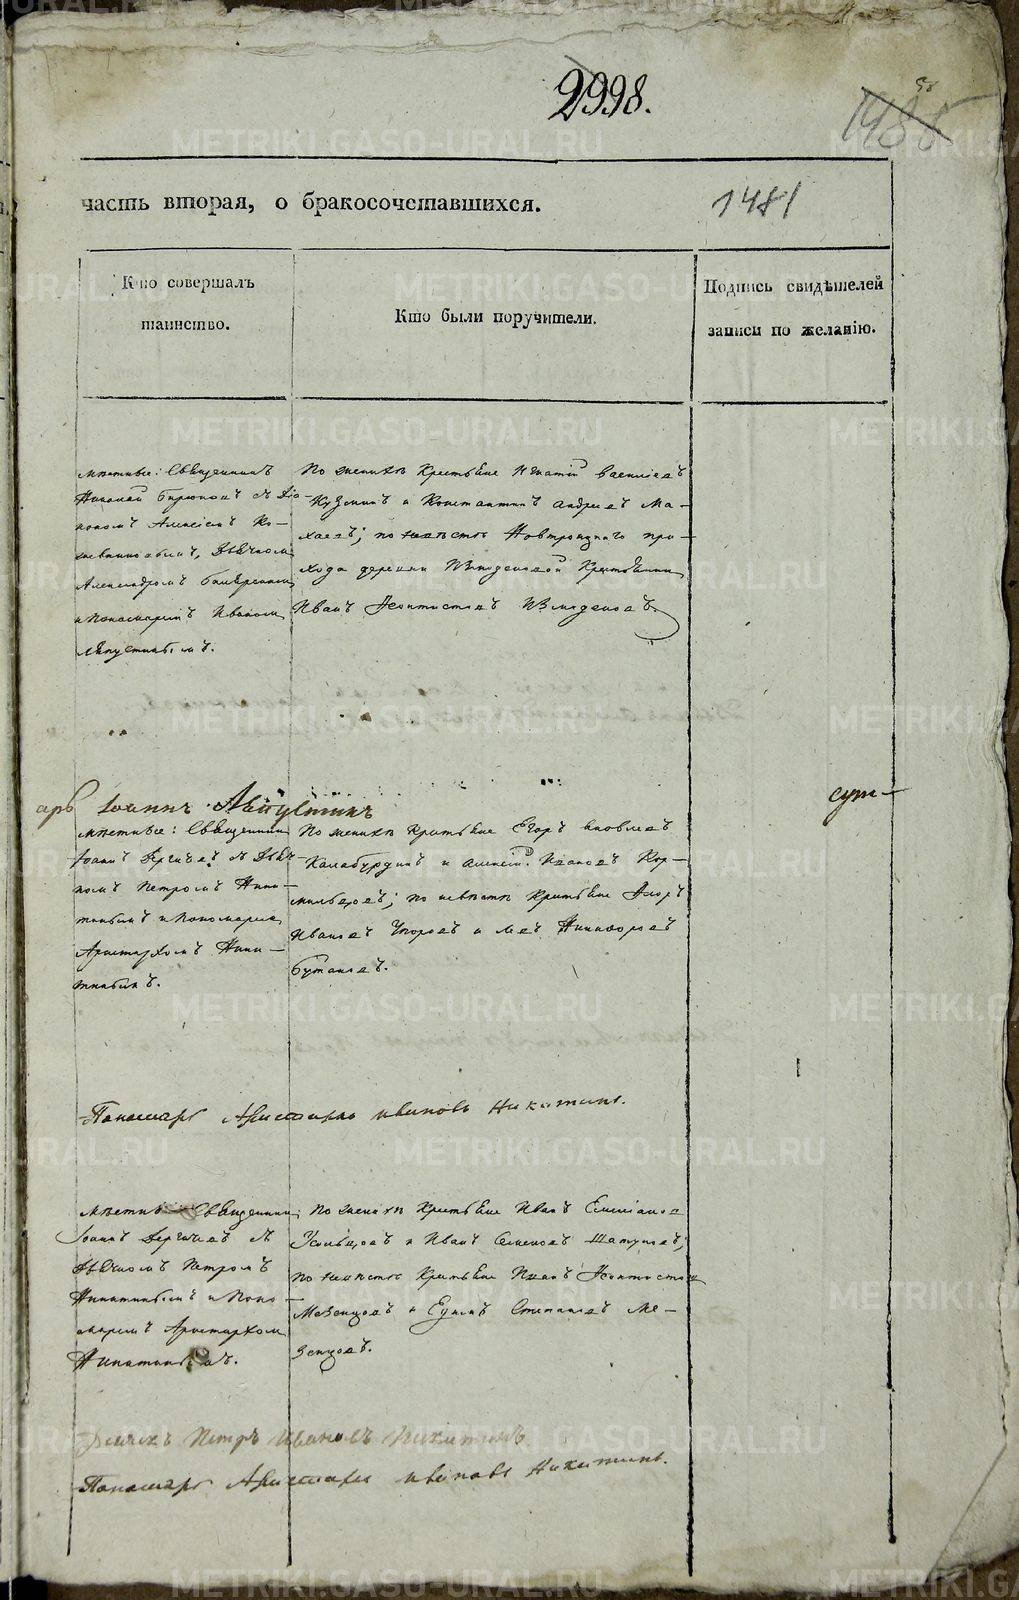 2998.
часть вторая, о бракосочетавшихся.
1481
Кто совершалъ
таинство.
Кто были поручители.
Подпись свидѣтелей
записи по желанію.
мѣстные: Священникъ
Николай Бирюковъ съ Діа-
кономъ Алексіемъ
Дьячкомъ
Александромъ
и Пономаремъ Иваномъ
Липустинымъ.
По женихѣ Крестьяне Игнатій Васильевъ
Кузминъ и Константинъ Андреевъ Ма-
хаевъ; по невѣстѣ Новтроицкаго при-
хода деревни Измоденовой Крестьянинъ
Иванъ Леонтьевъ Измоденовъ.
арь Іоаннъ
мѣстные: Священникъ
Іоаннъ Дергачевъ съ Дьяч-
комъ Петромъ Ники-
тинымъ и Пономаремъ
Аристархомъ Ники-
тинымъ.
По женихѣ Крестьяне Егоръ Яковлевъ
Калабурдинъ и Алексій Ивановъ Кор-
мильцовъ; по невѣстѣ Крестьяне
Ивановъ и Левъ Никифоровъ
Бутаковъ.
Панамарь Аристархъ Ивановъ Никитинъ.
мѣстные Священникъ
Іоаннъ Дергачевъ съ
Дьячкомъ Петромъ
Никитинымъ и Поно-
маремъ Аристархомъ
Никитинымъ.
По женихѣ Крестьяне Иванъ Емельяновъ
Усольцовъ и Иванъ Семеновъ Шатуновъ;
по невѣстѣ Крестьяне Иванъ Леонтьевъ
Мезенцовъ и Ефимъ Степановъ Ме-
зенцовъ.
Дьячекъ Петръ Ивановъ Никитинъ
Панамарь Аристархъ Ивановъ Никитинъ.
METRIKI.GASO-URAL.RU